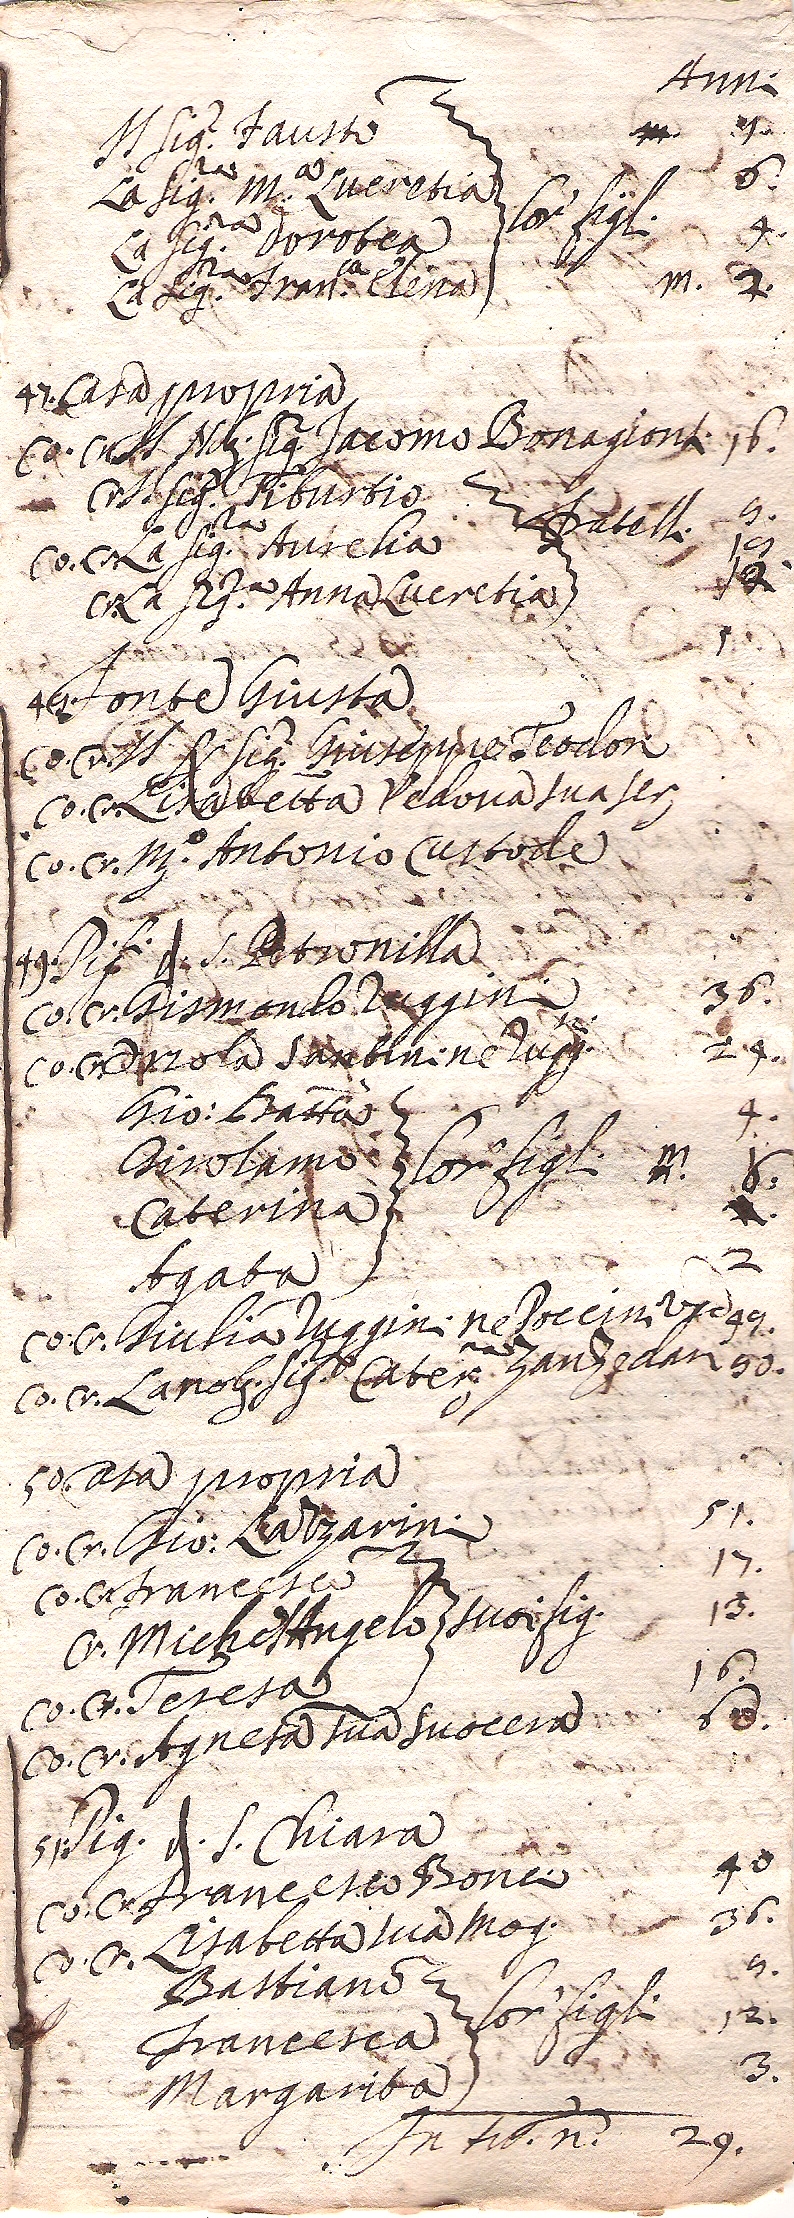 Anni
Il Sig.r Fausto 9.
La Sig.ra M.a Lucretia 6.
La Sig.ra Dorotea Lor' figl. 4.
La Sig.ra Fran.ca Elena m. 2.
47. Casa propria
Co. Cr. Il Nob. Sig.r Jacomo Bonagionti 16.
Cr. Il Sig.r Tiburtio fratelli 9.
Co. Cr. La Sig.ra Aurelia 19
Cr. La Sig.ra Anna Lucretia 12
48. Fonte Giusta
Co. Cr. Il Sig.r Giuseppe Teodori
Co. Cr. Lisabetta Vedova sua ser.
Co. Cr. M.o Antonio Custode
49. Pig. d. S. Petronilla
Co. Cr. Gismondo Ruggini 36.
Co. Cr. Orsola Santini ne Rugg.ni 24.
Gio: Batta 4.
Girolamo Lor' figli m. 6.
Caterina
Agata 2
Co. Cr. Giulia Ruggini ne Poccini Ved 49.
Co. Cr. La nob. Sig.ra Cater.na Zanzedari 50.
50. Casa propria
Co. Cr. Gio: Lazzarini 51.
Co. Cr. Francesco 17.
Cr. Michel'Angelo suoi fig. 13.
Co. Cr. Teresa 16.
Co. Cr. Agnesa sua suocera 60.
51. Pig. d. S. Chiara
Co. Cr. Francesco Bonci 40
Co. Cr. Lisabetta sua mog. 36.
Bastiano 9.
Francesca Lor' figli 12.
Margarita 3.
In tt.o n.o 29.